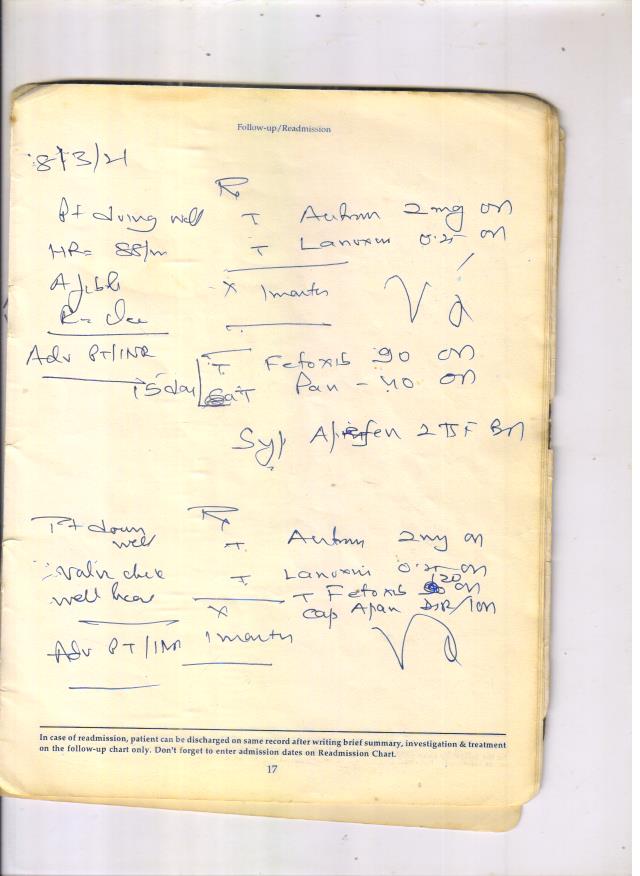 Follow-up/Readmission
8/3/21
Rx
Pt doing well T Acitrom 2 mg on
HR= 88/m T Lanoxin 0.25 on
A fib
x 1 month
Adv PT/INR T Fetoxib 90 on
15 day Pan - 40 on
Syp 2 TSF
Rx
Pt down well T. Acitrom 2 mg on
Valve click T Lanoxin 0.25 on
well heard T Fetoxib 120 on
x Cap Apan DSR / on
Adv PT/INR 1 month
In case of readmission, patient can be discharged on same record after writing brief summary, investigation & treatment
on the follow-up chart only. Don't forget to enter admission dates on Readmission Chart.
17